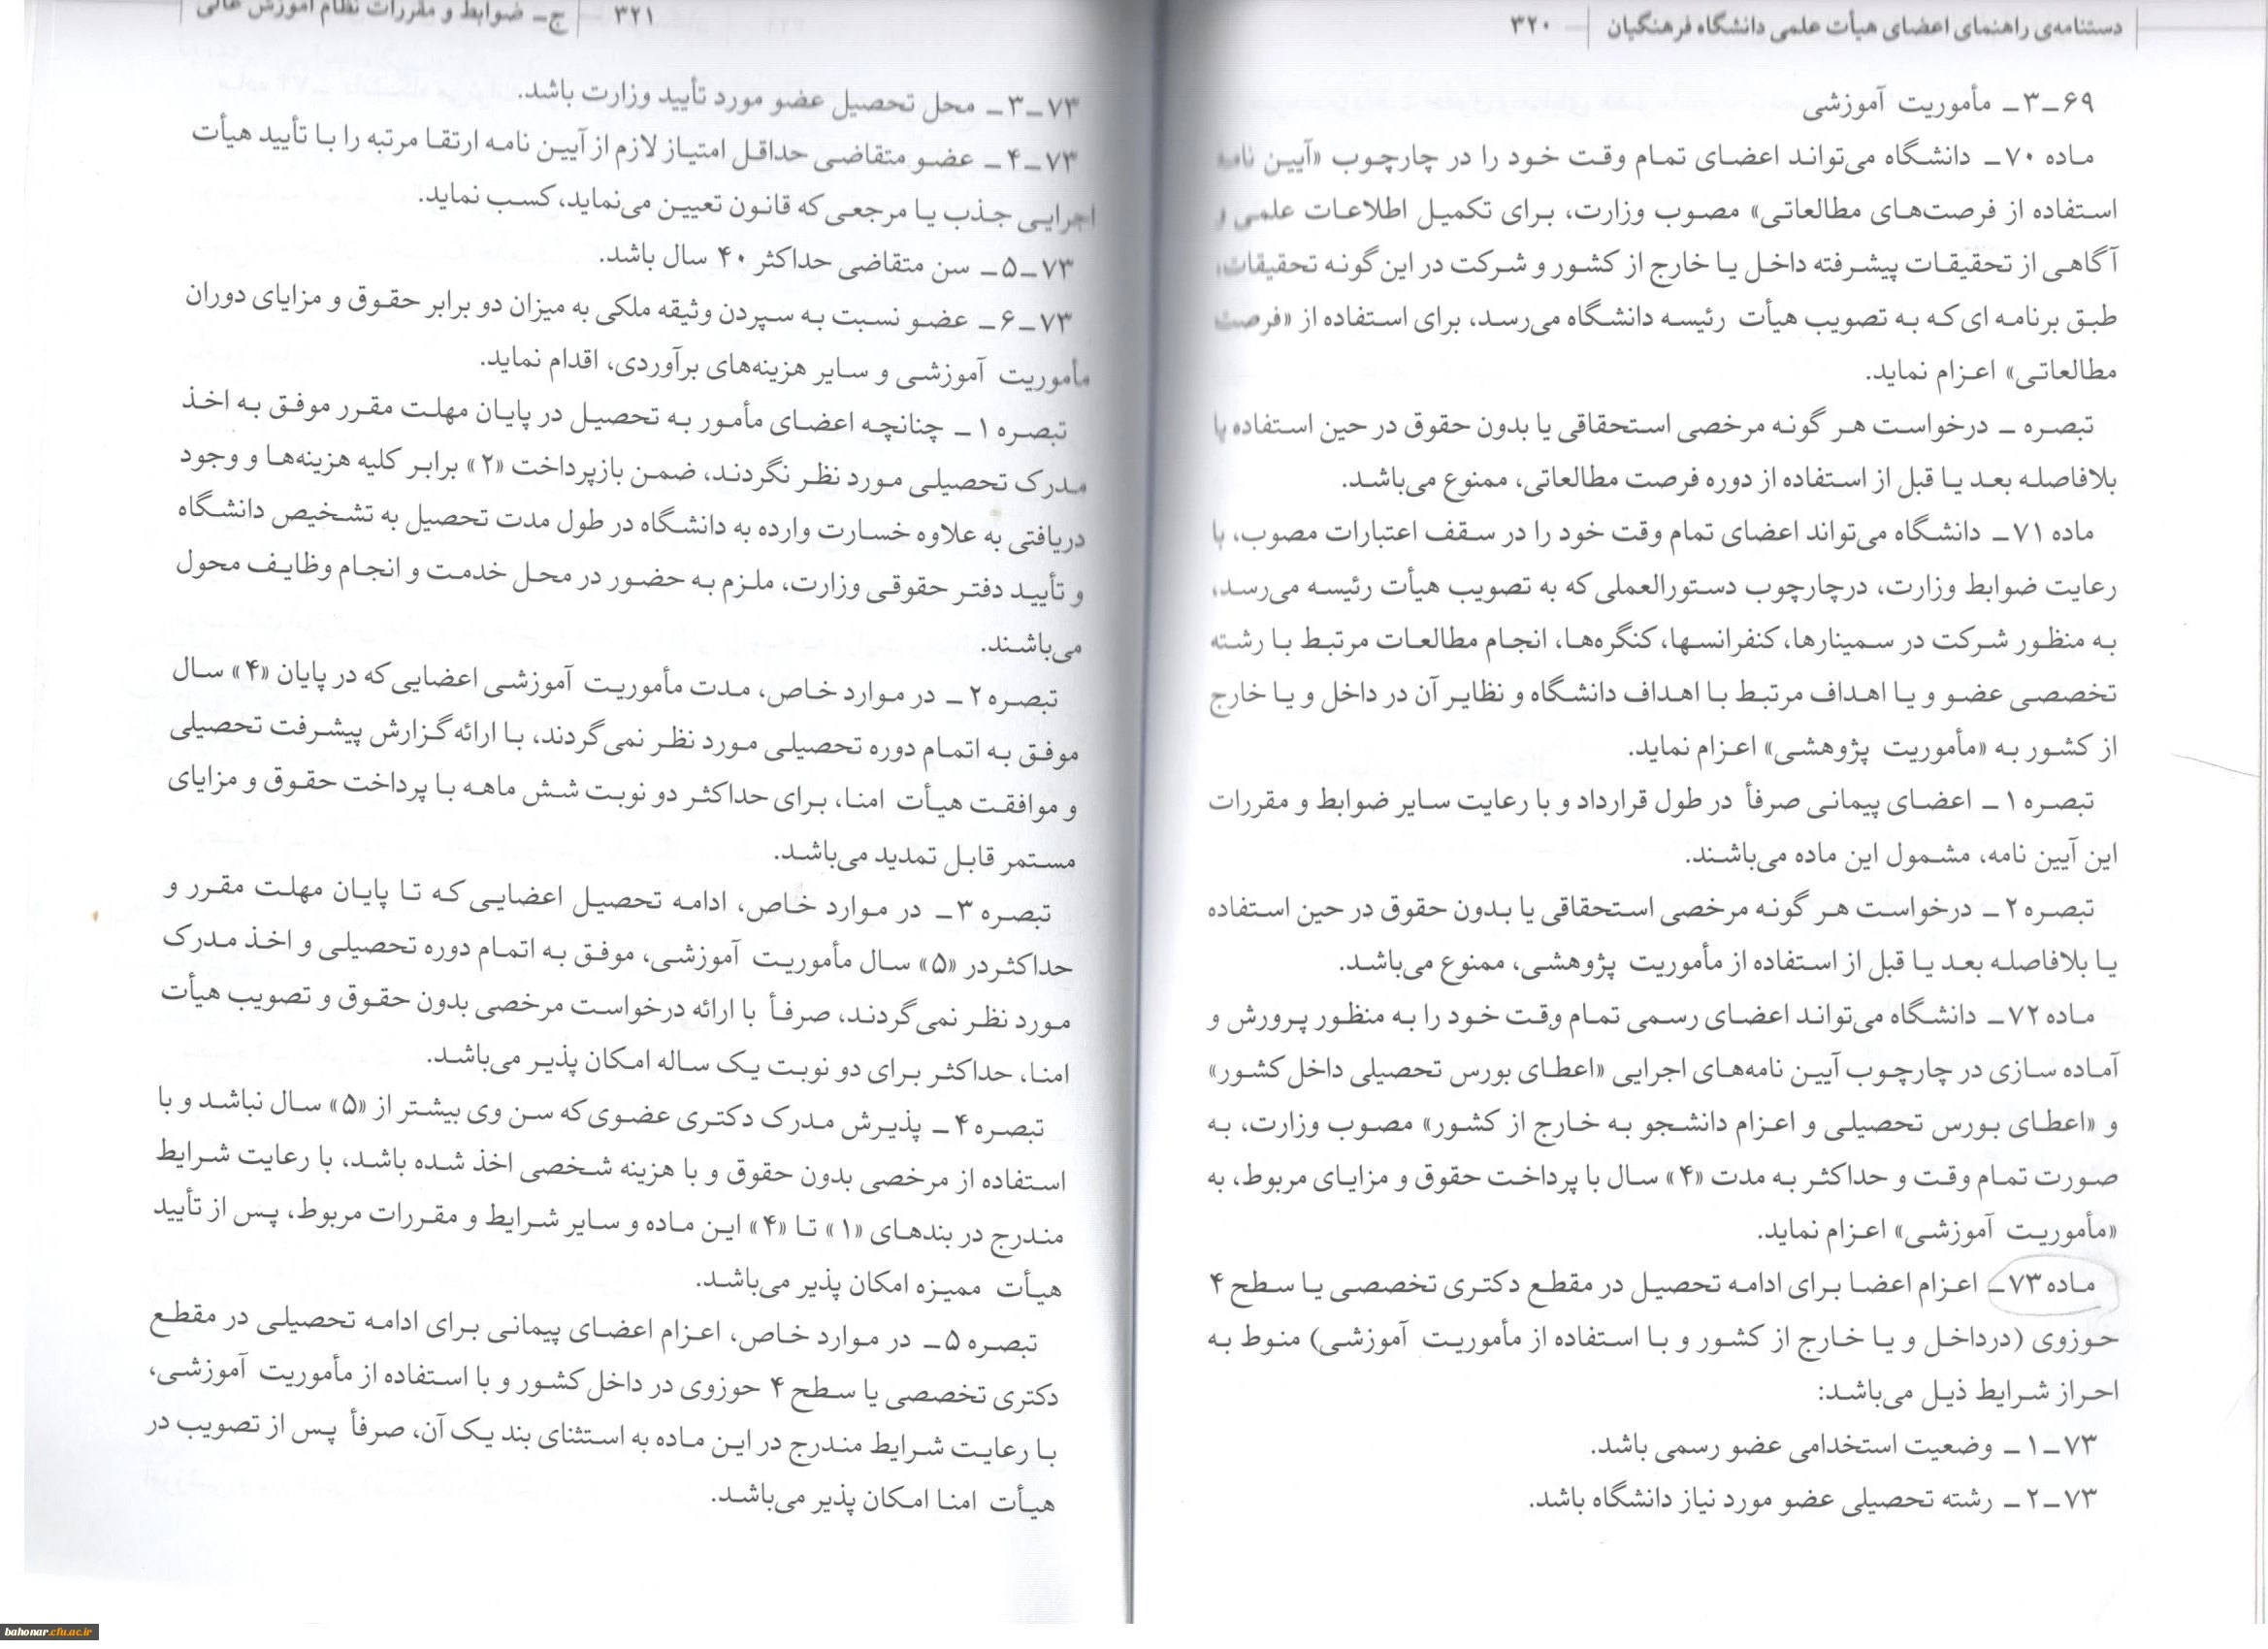 دستنامه‌ی راهنمای اعضای هیأت علمی دانشگاه فرهنگیان ۳۲۰
۶۹ـ۳ـ مأموریت آموزشی
ماده ۷۰ـ دانشگاه می‌تواند اعضای تمام وقت خود را در چارچوب «آیین نامه
استفاده از فرصت‌های مطالعاتی» مصوب وزارت، برای تکمیل اطلاعات علمی و
آگاهی از تحقیقات پیشرفته داخل یا خارج از کشور و شرکت در این گونه تحقیقات،
طبق برنامه ای که به تصویب هیأت رئیسه دانشگاه می‌رسد، برای استفاده از «فرصت
مطالعاتی» اعزام نماید.
تبصره ـ درخواست هر گونه مرخصی استحقاقی یا بدون حقوق در حین استفاده یا
بلافاصله بعد یا قبل از استفاده از دوره فرصت مطالعاتی، ممنوع می‌باشد.
ماده ۷۱ـ دانشگاه می‌تواند اعضای تمام وقت خود را در سقف اعتبارات مصوب، با
رعایت ضوابط وزارت، درچارچوب دستورالعملی که به تصویب هیأت رئیسه می‌رسد،
به منظور شرکت در سمینارها، کنفرانسها، کنگره‌ها، انجام مطالعات مرتبط با رشته
تخصصی عضو و یا اهداف مرتبط با اهداف دانشگاه و نظایر آن در داخل و یا خارج
از کشور به «مأموریت پژوهشی» اعزام نماید.
تبصره ۱ـ اعضای پیمانی صرفأ در طول قرارداد و با رعایت سایر ضوابط و مقررات
این آیین نامه، مشمول این ماده می‌باشند.
تبصره ۲ـ درخواست هر گونه مرخصی استحقاقی یا بدون حقوق در حین استفاده
یا بلافاصله بعد یا قبل از استفاده از مأموریت پژوهشی، ممنوع می‌باشد.
ماده ۷۲ـ دانشگاه می‌تواند اعضای رسمی تمام وقت خود را به منظور پرورش و
آماده سازی در چارچوب آیین نامه‌های اجرایی «اعطای بورس تحصیلی داخل کشور»
و «اعطای بورس تحصیلی و اعزام دانشجو به خارج از کشور» مصوب وزارت، به
صورت تمام وقت و حداکثر به مدت «۴» سال با پرداخت حقوق و مزایای مربوط، به
«مأموریت آموزشی» اعزام نماید.
ماده ۷۳ـ اعزام اعضا برای ادامه تحصیل در مقطع دکتری تخصصی یا سطح ۴
حوزوی (درداخل و یا خارج از کشور و با استفاده از مأموریت آموزشی) منوط به
احراز شرایط ذیل می‌باشد:
۷۳ـ۱ـ وضعیت استخدامی عضو رسمی باشد.
۷۳ـ۲ـ رشته تحصیلی عضو مورد نیاز دانشگاه باشد.
۳۲۱ ج ـ ضوابط و مقررات نظام آموزش عالی
۷۳ـ۳ـ محل تحصیل عضو مورد تأیید وزارت باشد.
۷۳ـ۴ـ عضو متقاضی حداقل امتیاز لازم از آیین نامه ارتقا مرتبه را با تأیید هیأت
اجرایی جذب یا مرجعی که قانون تعیین می‌نماید، کسب نماید.
۷۳ـ۵ـ سن متقاضی حداکثر ۴۰ سال باشد.
۷۳ـ۶ـ عضو نسبت به سپردن وثیقه ملکی به میزان دو برابر حقوق و مزایای دوران
مأموریت آموزشی و سایر هزینه‌های برآوردی، اقدام نماید.
تبصره ۱ـ چنانچه اعضای مأمور به تحصیل در پایان مهلت مقرر موفق به اخذ
مدرک تحصیلی مورد نظر نگردند، ضمن بازپرداخت «۲» برابر کلیه هزینه‌ها و وجود
دریافتی به علاوه خسارت وارده به دانشگاه در طول مدت تحصیل به تشخیص دانشگاه
و تأیید دفتر حقوقی وزارت، ملزم به حضور در محل خدمت و انجام وظایف محول
می‌باشند.
تبصره ۲ـ در موارد خاص، مدت مأموریت آموزشی اعضایی که در پایان «۴» سال
موفق به اتمام دوره تحصیلی مورد نظر نمی‌گردند، با ارائه گزارش پیشرفت تحصیلی
و موافقت هیأت امنا، برای حداکثر دو نوبت شش ماهه با پرداخت حقوق و مزایای
مستمر قابل تمدید می‌باشد.
تبصره ۳ـ در موارد خاص، ادامه تحصیل اعضایی که تا پایان مهلت مقرر و
حداکثردر «۵» سال مأموریت آموزشی، موفق به اتمام دوره تحصیلی و اخذ مدرک
مورد نظر نمی‌گردند، صرفأ با ارائه درخواست مرخصی بدون حقوق و تصویب هیأت
امنا، حداکثر برای دو نوبت یک ساله امکان پذیر می‌باشد.
تبصره ۴ـ پذیرش مدرک دکتری عضوی که سن وی بیشتر از «۵» سال نباشد و با
استفاده از مرخصی بدون حقوق و با هزینه شخصی اخذ شده باشد، با رعایت شرایط
مندرج در بندهای «۱» تا «۴» این ماده و سایر شرایط و مقررات مربوط، پس از تأیید
هیأت ممیزه امکان پذیر می‌باشد.
تبصره ۵ـ در موارد خاص، اعزام اعضای پیمانی برای ادامه تحصیلی در مقطع
دکتری تخصصی یا سطح ۴ حوزوی در داخل کشور و با استفاده از مأموریت آموزشی،
با رعایت شرایط مندرج در این ماده به استثنای بند یک آن، صرفأ پس از تصویب در
هیأت امنا امکان پذیر می‌باشد.
bahonar.cfu.ac.ir